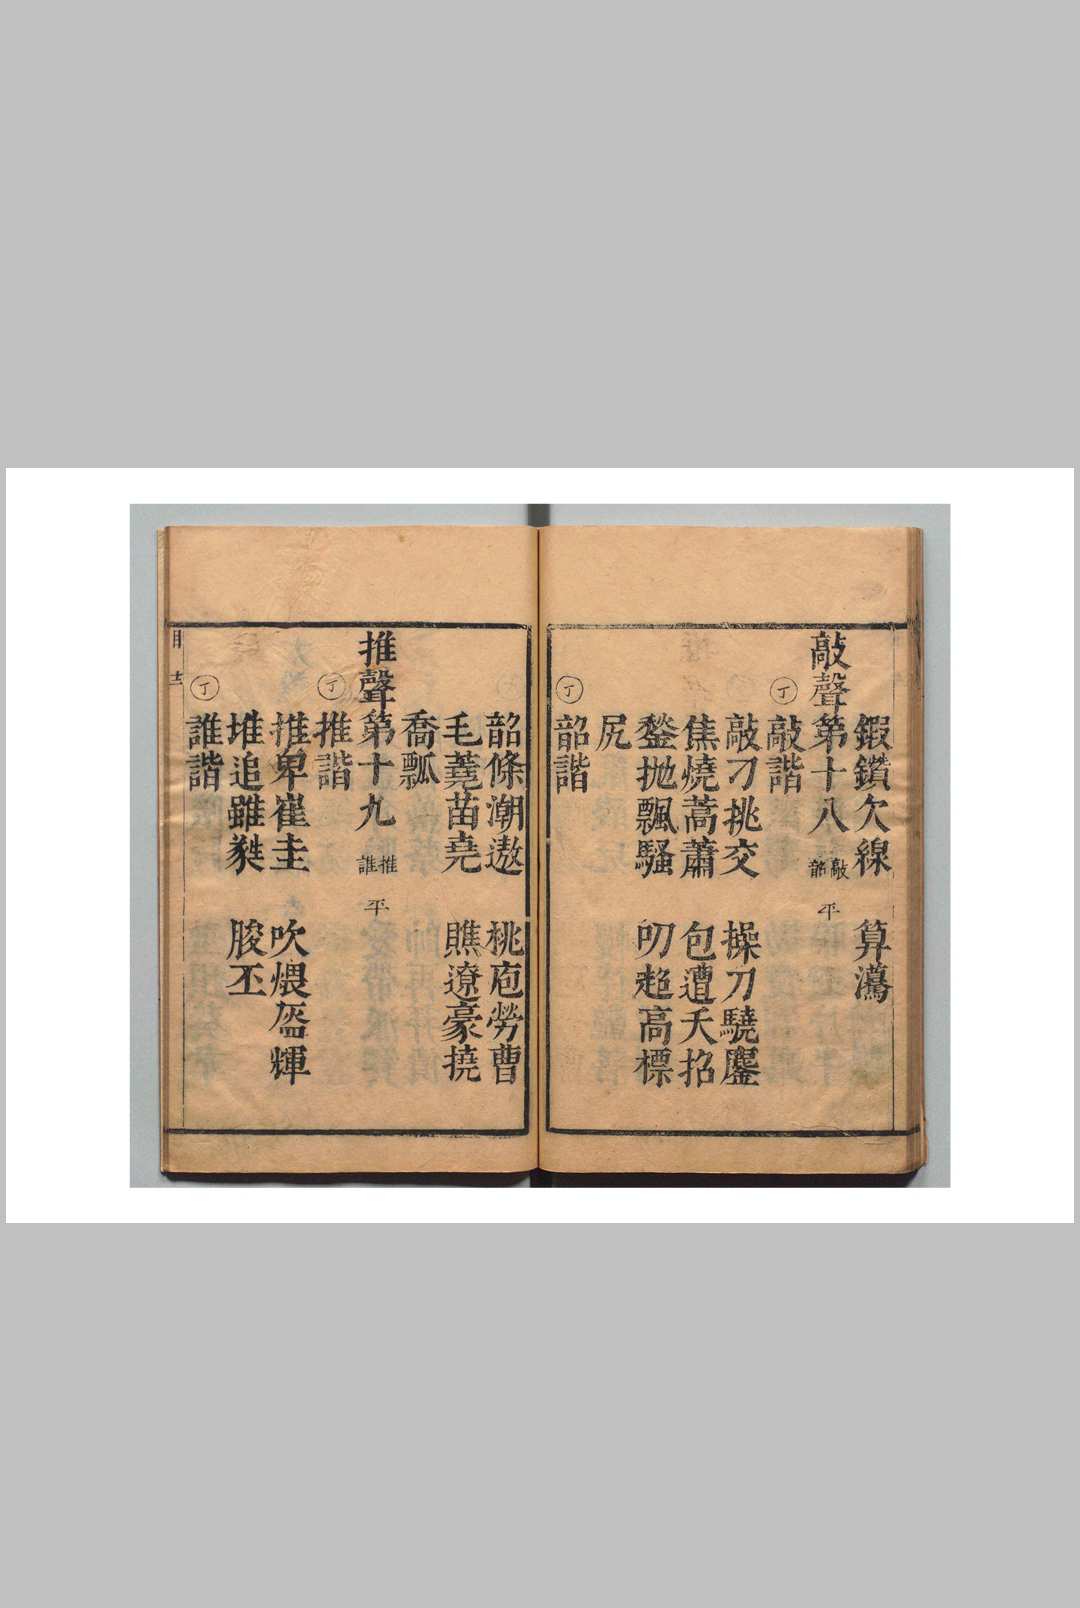 鍜鑽欠線　算㶕
敲聲第十八 敲韶 平
丁 敲諧
敲刁挑交　操刀驍鏖
焦燒蒿蕭　包遭夭招
鏊拋飄騷　叨趫高標
尻
丁 韶諧
韶條潮遨　桃庖勞曹
毛蕘苗堯　瞧遼豪撓
喬瓢
推聲第十九 推誰 平
丁 推諧
推卑崔圭　吹煨盔輝
堆追雖　朘丕
丁 誰諧